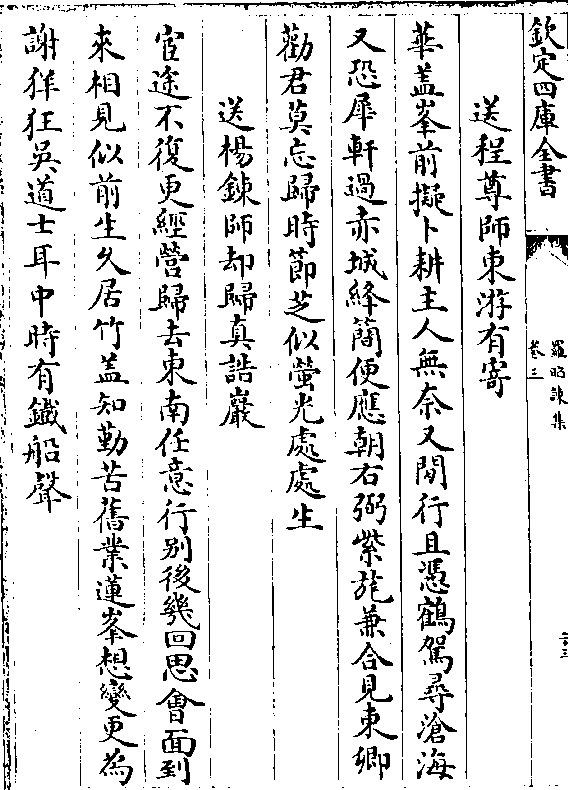 欽定四庫全書
羅昭諫集
卷三
二三
送程尊師東游有寄
華蓋峯前擬卜耕主人無奈又閒行且憑鶴駕尋滄海
又恐犀軒過赤城絳簡便應朝右弼紫旄兼合見東卿
勸君莫忘歸時節芝似螢光處處生
送楊鍊師却歸真誥巖
宦途不復更經營歸去東南任意行别後幾回思會面到
來相見似前生乆居竹蓋知勤苦舊業蓮峯想變更為
謝佯狂吳道士耳中時有鐵船聲